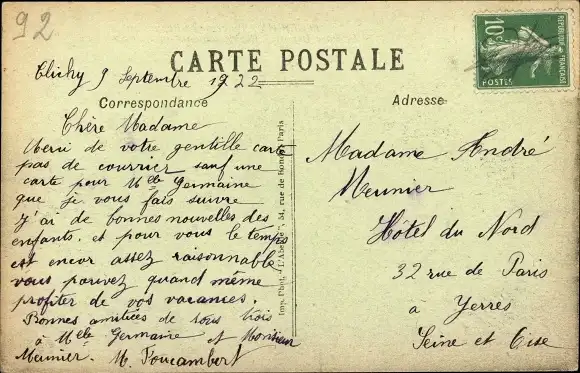 92
CARTE POSTALE
10c
REPUBLIQUE FRANÇAISE
POSTES
Clichy 9 Septembre 1922
Correspondance
Chère Madame
Merci de votre gentille carte
pas de courrier sauf une
carte pour Mlle Germaine
que je vous fais suivre
J'ai de bonnes nouvelles des
enfants. et pour vous le temps
est encor assez raisonnable
vous pouvez quand même
profiter de vos vacances.
Bonnes amitiées de tous trois
à Mlle Germaine et Monsieur
Meunier. M. Foucambert
Imp. Phot. "L'Abeille", 54, rue de Paris
Adresse
Madame André
Meunier
Hôtel du Nord
32 rue de Paris
a Yerres
Seine et Oise